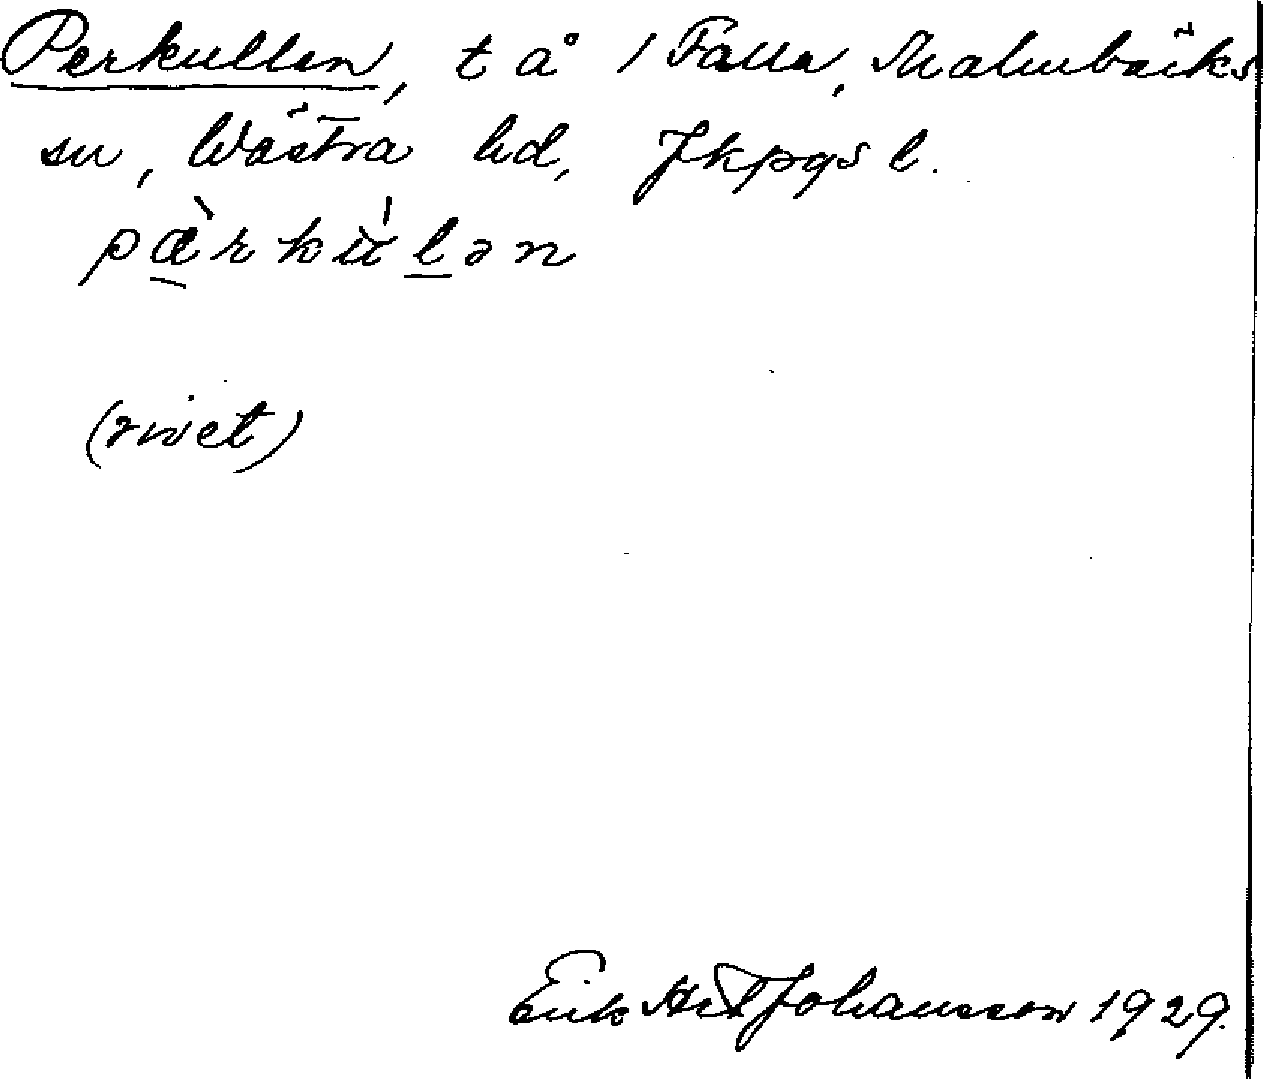 Perkullen, t å 1 Falla, Malmbäcks
sn, Wästra hd, Jkpgs l.
pæ̀rkùlən
(rivet)
Erik Johansson 1929.